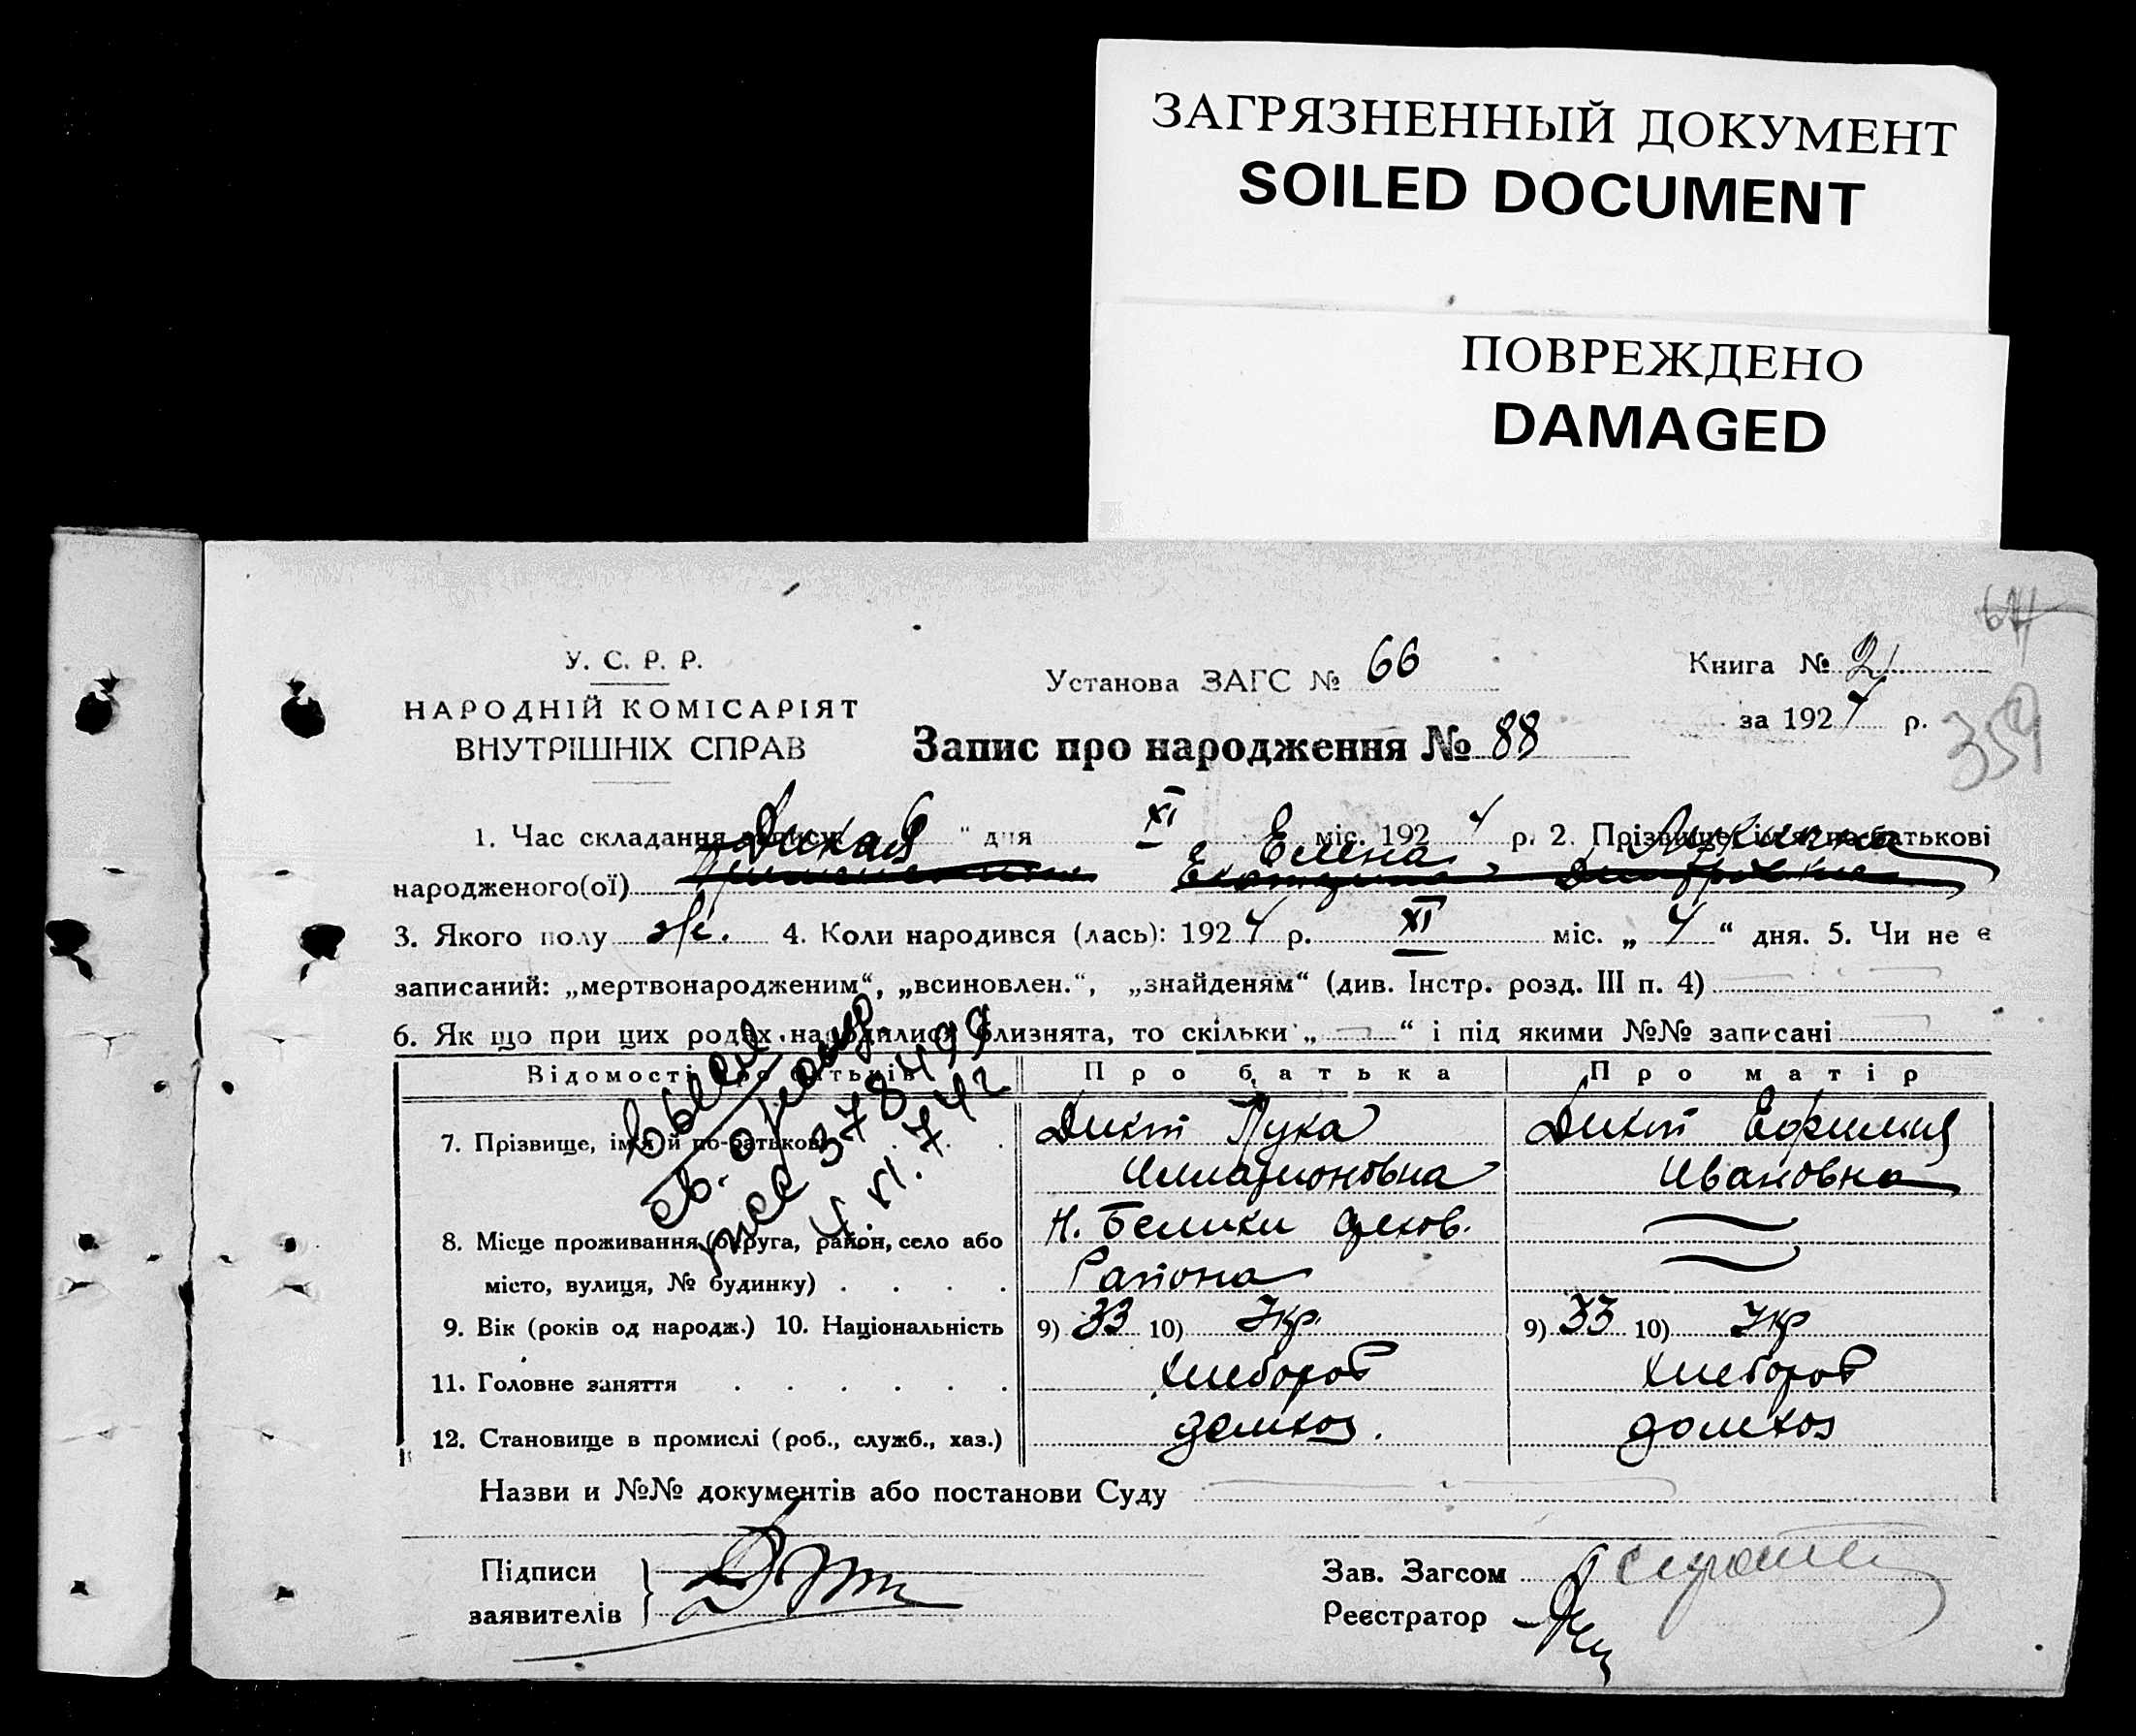 ЗАГРЯЗНЕННЫЙ ДОКУМЕНТ
SOILED DOCUMENT
ПОВРЕЖДЕНО
DAMAGED
У. С. Р. Р.
НАРОДНІЙ КОМІСАРІЯТ
ВНУТРІШНІХ СПРАВ
Установа ЗАГС № 66
Книга № 2
за 1927 р.
359
Запис про народження № 88
1. Час складання запису " дня XI міс. 192 р. 2. Прізвище, ім'я, по-батькові
Дикая Елена Лукинична
народженого(ої)
3. Якого полу ж. 4. Коли народився (лась): 192 р. XI міс. „ “ дня. 5. Чи не є
записаний: „мертвонародженим“, „всиновлен.“, „знайденям“ (див. Інстр. розд. III п. 4)
6. Як що при цих родах народилися близнята, то скільки „ “ і під якими №№ записані
Відомості про батьків Про батька Про матір
7. Прізвище, ім'я й по-батькові Дикий Лука Дикий Ефимия
Илларионовна Ивановна
8. Місце проживання (округа, район, село або Н. Белики
місто, вулиця, № будинку) Района
9. Вік (років од народж.) 10. Національність 9) 33 10) Укр. 9) 33 10) Укр
11. Головне заняття хлебороб хлебороб
12. Становище в промислі (роб., служб., хаз.) домхоз. домхоз
Назви и №№ документів або постанови Суду
Підписи
заявителів
Зав. Загсом
Реєстратор